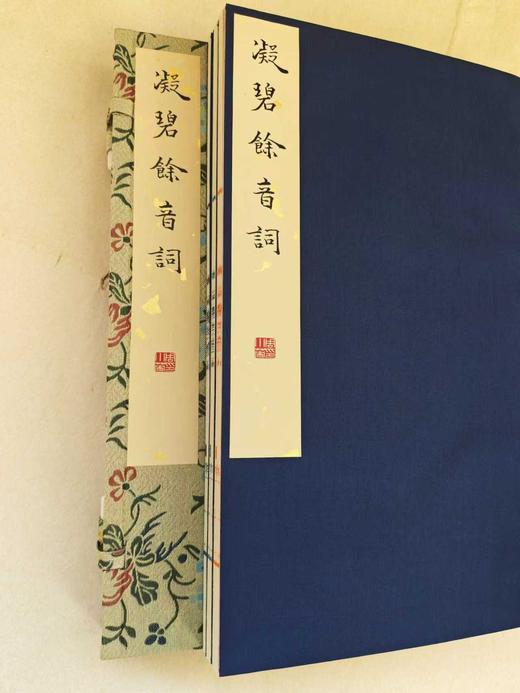 凝碧餘音詞
凝碧餘音詞